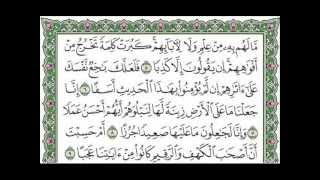 مَّا لَهُم بِهِۦ مِنْ عِلْمٍ وَلَا لِـَٔابَآئِهِمْ ۚ كَبُرَتْ كَلِمَةً تَخْرُجُ مِنْ
أَفْوَٰهِهِمْ ۚ إِن يَقُولُونَ إِلَّا كَذِبًا ۝٥ فَلَعَلَّكَ بَـٰخِعٌ نَّفْسَكَ
عَلَىٰٓ ءَاثَـٰرِهِمْ إِن لَّمْ يُؤْمِنُوا۟ بِهَـٰذَا ٱلْحَدِيثِ أَسَفًا ۝٦ إِنَّا
جَعَلْنَا مَا عَلَى ٱلْأَرْضِ زِينَةً لَّهَا لِنَبْلُوَهُمْ أَيُّهُمْ أَحْسَنُ عَمَلًا ۝٧
وَإِنَّا لَجَـٰعِلُونَ مَا عَلَيْهَا صَعِيدًا جُرُزًا ۝٨ أَمْ حَسِبْتَ
أَنَّ أَصْحَـٰبَ ٱلْكَهْفِ وَٱلرَّقِيمِ كَانُوا۟ مِنْ ءَايَـٰتِنَا عَجَبًا ۝٩